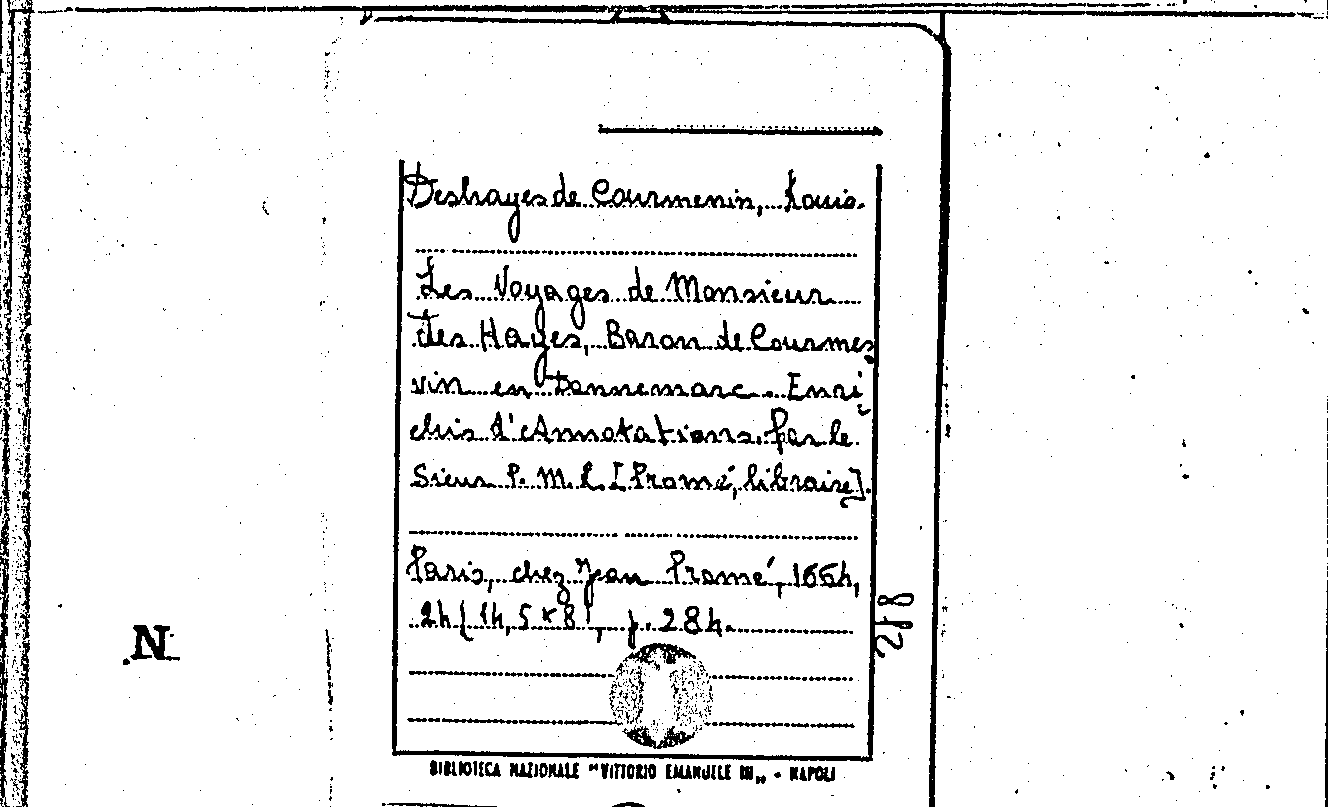 Deshayes de Courmenin, Louis.
Les Voyages de Monsieur
des Hayes, Baron de Courmes
vin en Dannemarc. Enri
chis d'Annotations. Par le
Sieur P. M. L. [Promé, libraire].
Paris, chez Jean Promé, 1664,
24 (14,5 x 8), p. 284.
278
N
BIBLIOTECA NAZIONALE "VITTORIO EMANUELE III" - NAPOLI